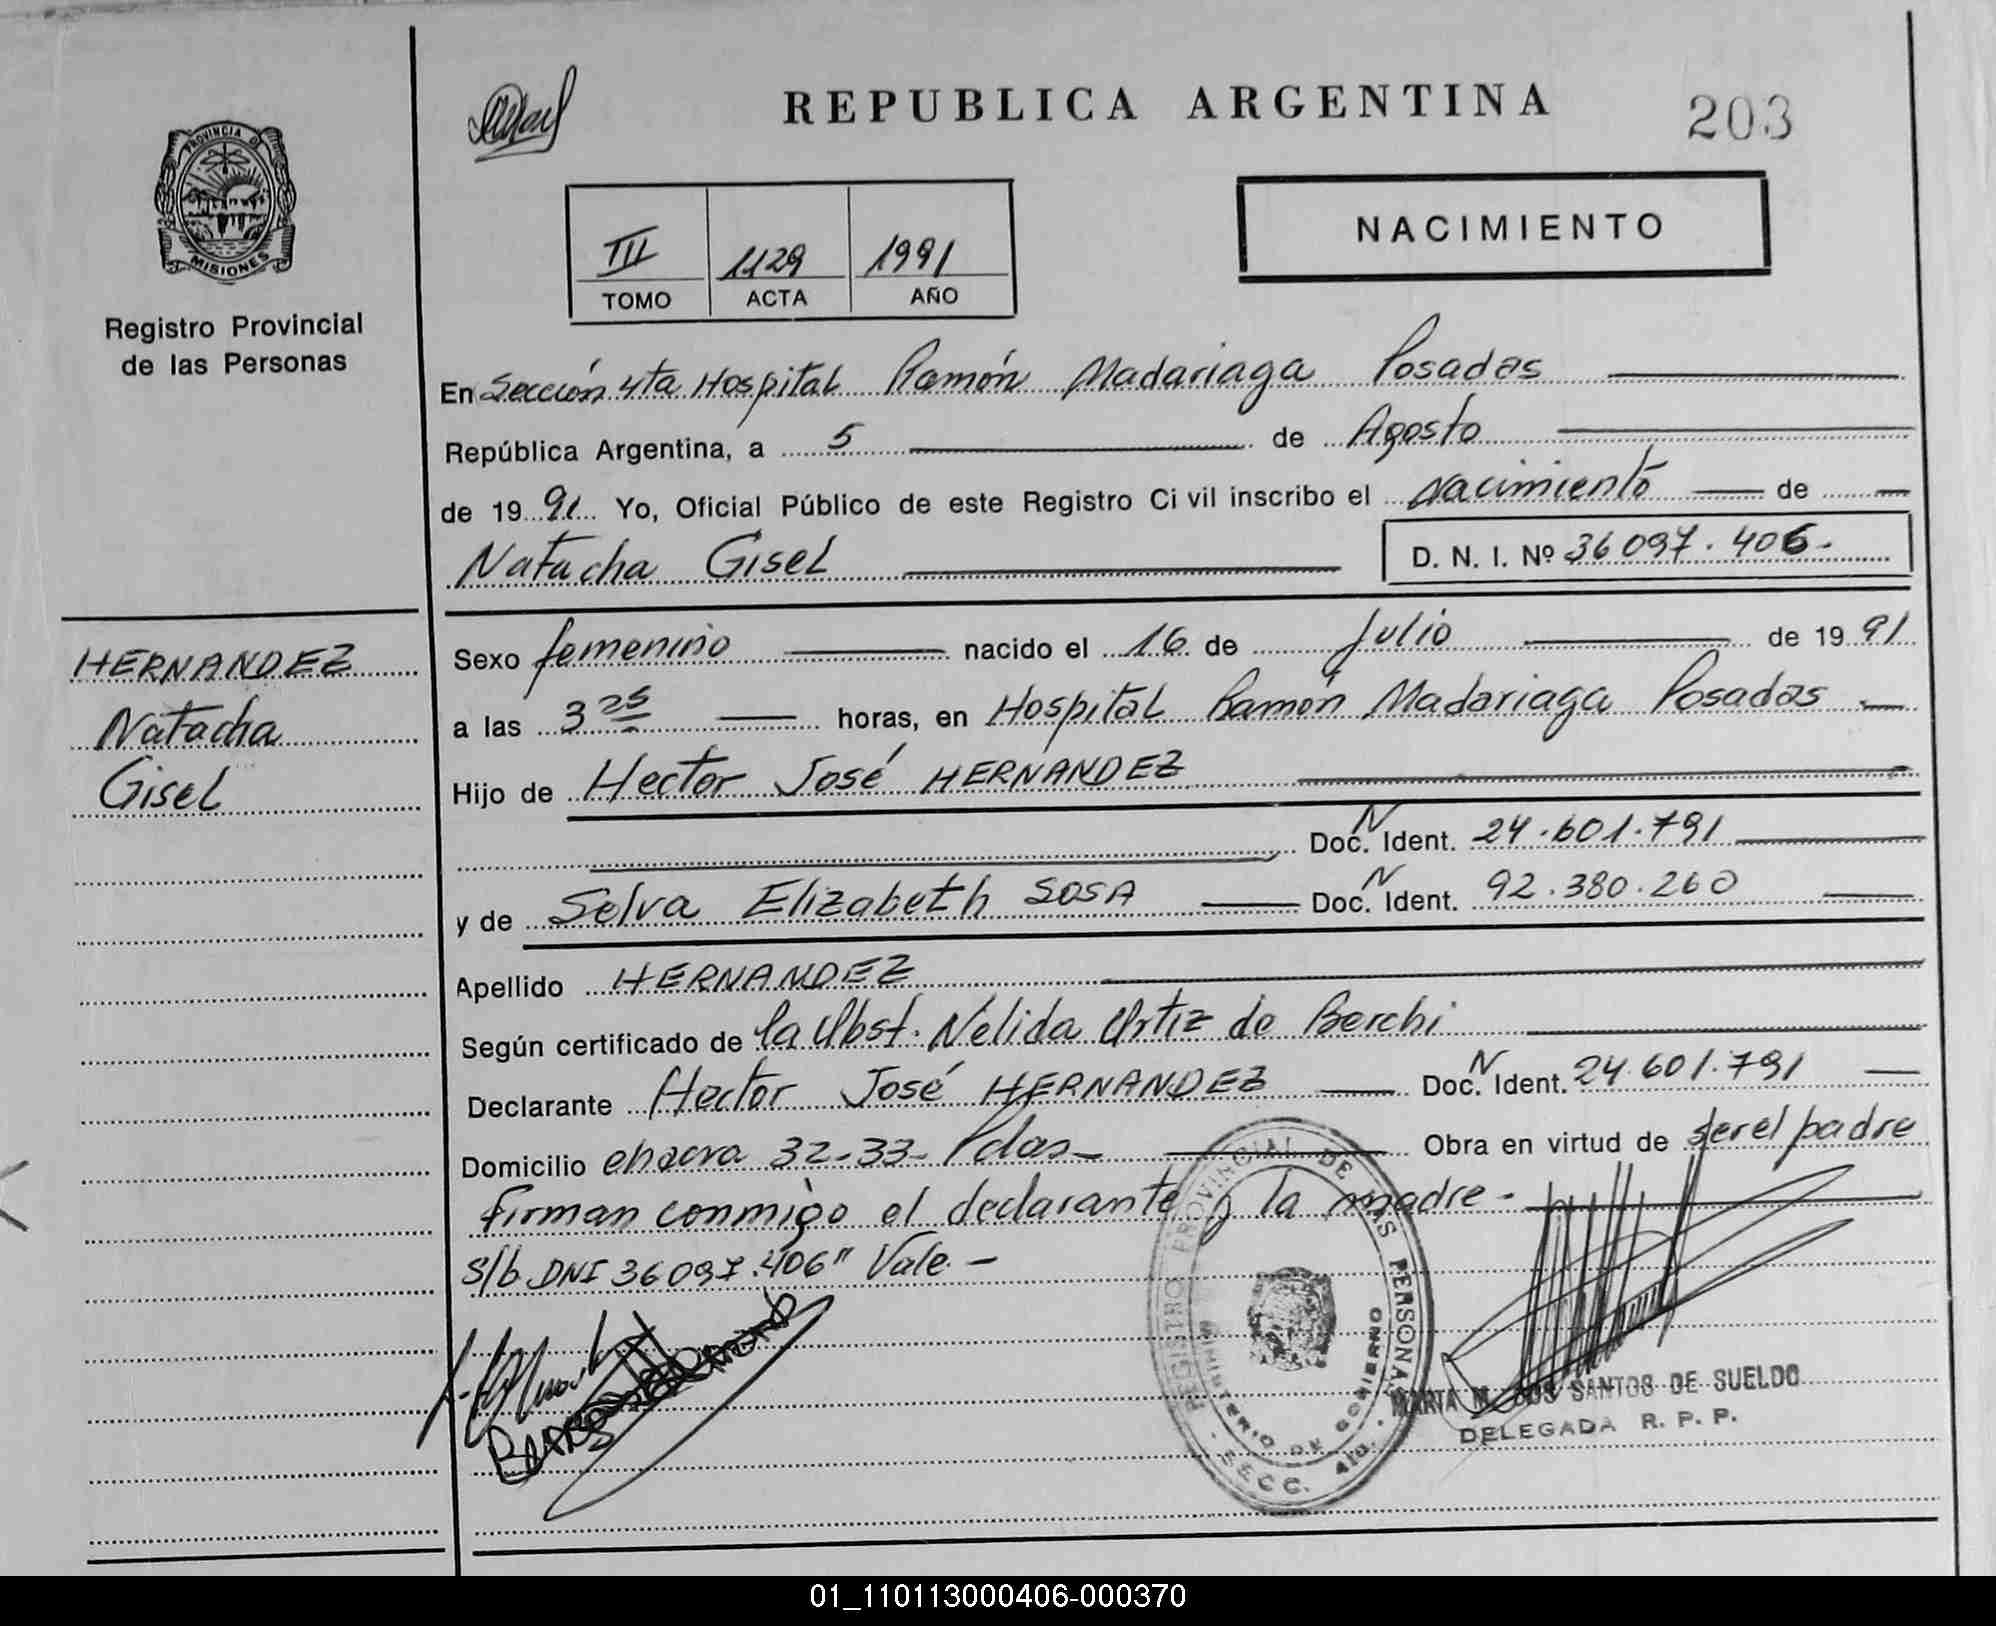 REPUBLICA ARGENTINA
203
PROVINCIA DE
MISIONES
Registro Provincial
de las Personas
III 1129 1991
TOMO ACTA AÑO
NACIMIENTO
En Sección 4ta Hospital Ramón Madariaga Posadas
República Argentina, a 5 de Agosto
de 19 91 Yo, Oficial Público de este Registro Civil inscribo el Nacimiento de
Natacha Gisel D. N. I. Nº 36097.406.-
HERNANDEZ
Natacha
Gisel
Sexo femenino nacido el 16 de Julio de 19 91
a las 3 25 horas, en Hospital Ramón Madariaga Posadas
Hijo de Hector José HERNANDEZ
Doc. N Ident. 24.601.791
y de Selva Elizabeth SOSA Doc. N Ident. 92.380.260
Apellido HERNANDEZ
Según certificado de la Obst. Nélida Ortiz de Berchi
Declarante Hector José HERNANDEZ Doc. N Ident. 24.601.791
Domicilio chacra 32-33- Pdas- Obra en virtud de ser el padre
firman conmigo el declarante y la madre-
s/b DNI 36097.406" Vale.-
REGISTRO PROVINCIAL DE LAS PERSONAS
MINISTERIO DE GOBIERNO
SECC. 4ta.
MARTA M. DOS SANTOS DE SUELDO
DELEGADA R. P. P.
01_110113000406-000370